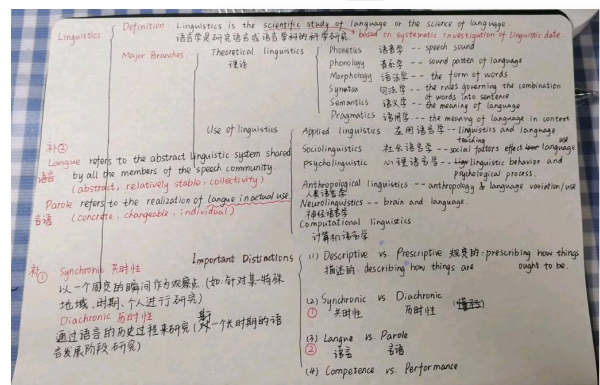 Linguistics
Definition Linguistics is the scientific study of language or the science of language.
语言学是研究语言或语言学科的科学研究 → based on systematic investigation of linguistic date.
Major Branches
Theoretical linguistics
理论
Phonetics 语音学 -- speech sound
phonology 音系学 -- sound pattern of language
Morphology 语法学 -- the form of words
Synatax 句法学 -- the rules governing the combination
of words into sentence
Semantics 语义学 -- the meaning of language
Pragmatics 语用学 -- the meaning of language in context
Use of linguistics
Applied linguistics 应用语言学 -- linguistics and language
teaching
Sociolinguistics 社会语言学 -- social factors effect language use
psycholinguistic 心理语言学 -- linguistic behavior and
psychological process.
Anthropological linguistics -- anthropology & language variation/use
人类语言学
Neurolinguistics -- brain and language.
神经语言学
Computational linguistics
计算机语言学
补②
Langue refers to the abstract linguistic system shared
语言 by all the members of the speech community.
(abstract, relatively stable, collectivity)
Parole refers to the realization of langue in actual use.
言语 (concrete, changeable, individual)
补①
Synchronic 共时性
以一个固定的瞬间作为观察点 (如:针对某一特殊
地域、时期、个人进行研究)
Diachronic 历时性
通过语言的历史过程来研究 (对一个长时期的语
言发展阶段研究)
Important Distinctions
(1) Descriptive vs. Prescriptive 规定的: prescribing how things
描述的: describing how things are ought to be.
(2) Synchronic vs. Diachronic
① 共时性 历时性
(3) Langue vs. Parole
② 语言 言语
(4) Competence vs. Performance